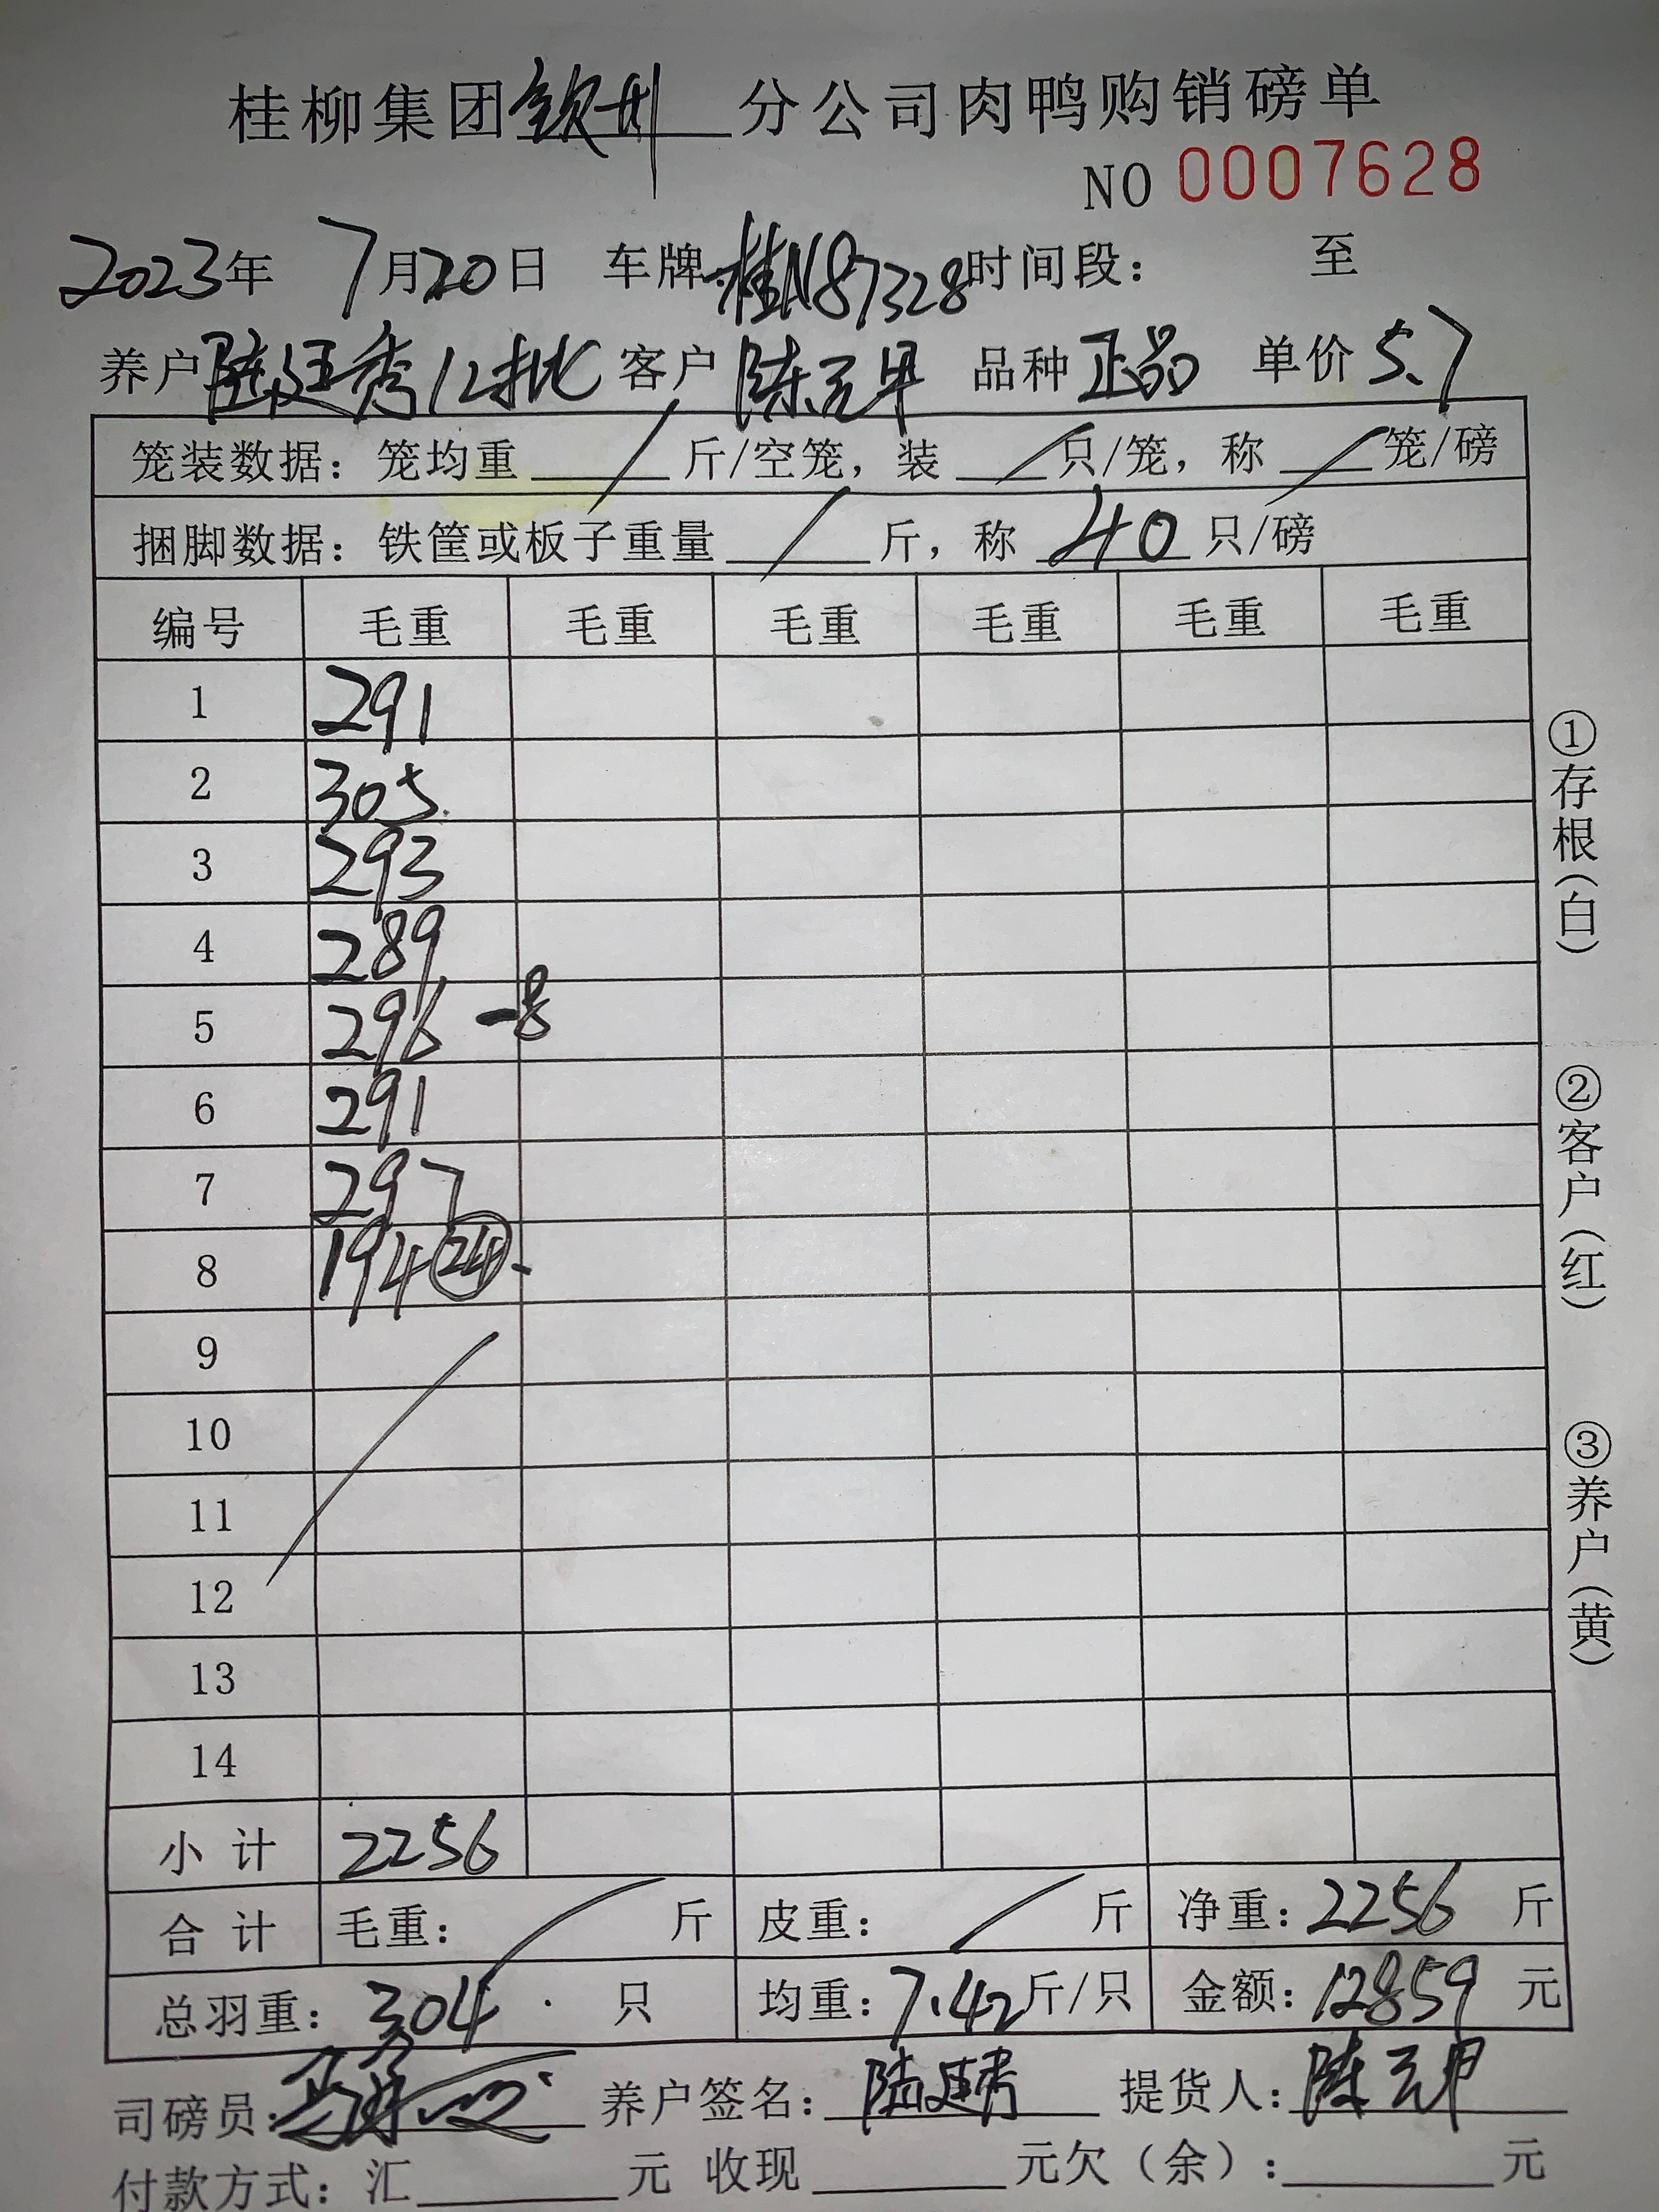 桂柳集团钦州分公司肉鸭购销磅单
NO 0007628
2023年 7月20日 车牌:桂N87328时间段: 至
养户 陆廷秀12批 客户 陈元甲 品种 正品 单价 5.7
笼装数据:笼均重 / 斤/空笼,装 / 只/笼,称 / 笼/磅
捆脚数据:铁筐或板子重量 / 斤,称 40 只/磅
编号 毛重 毛重 毛重 毛重 毛重 毛重
1 291
2 305
3 293
4 289
5 296 -8
6 291
7 297
8 194 (24)-
9
10
11
12
13
14
小计 2256
合计 毛重: / 斤 皮重: / 斤 净重:2256 斤
总羽重:304 只 均重:7.42斤/只 金额:12859 元
司磅员: 养户签名:陆廷秀 提货人:陈元甲
付款方式:汇 元 收现 元欠(余): 元
①存根(白)
②客户(红)
③养户(黄)